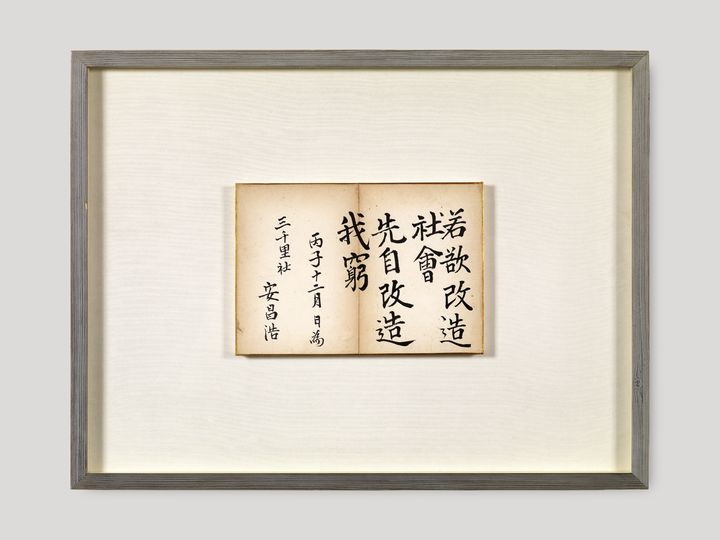 若欲改造
社會
先自改造
我窮
丙子十二月 日 為
三千里社 安昌浩